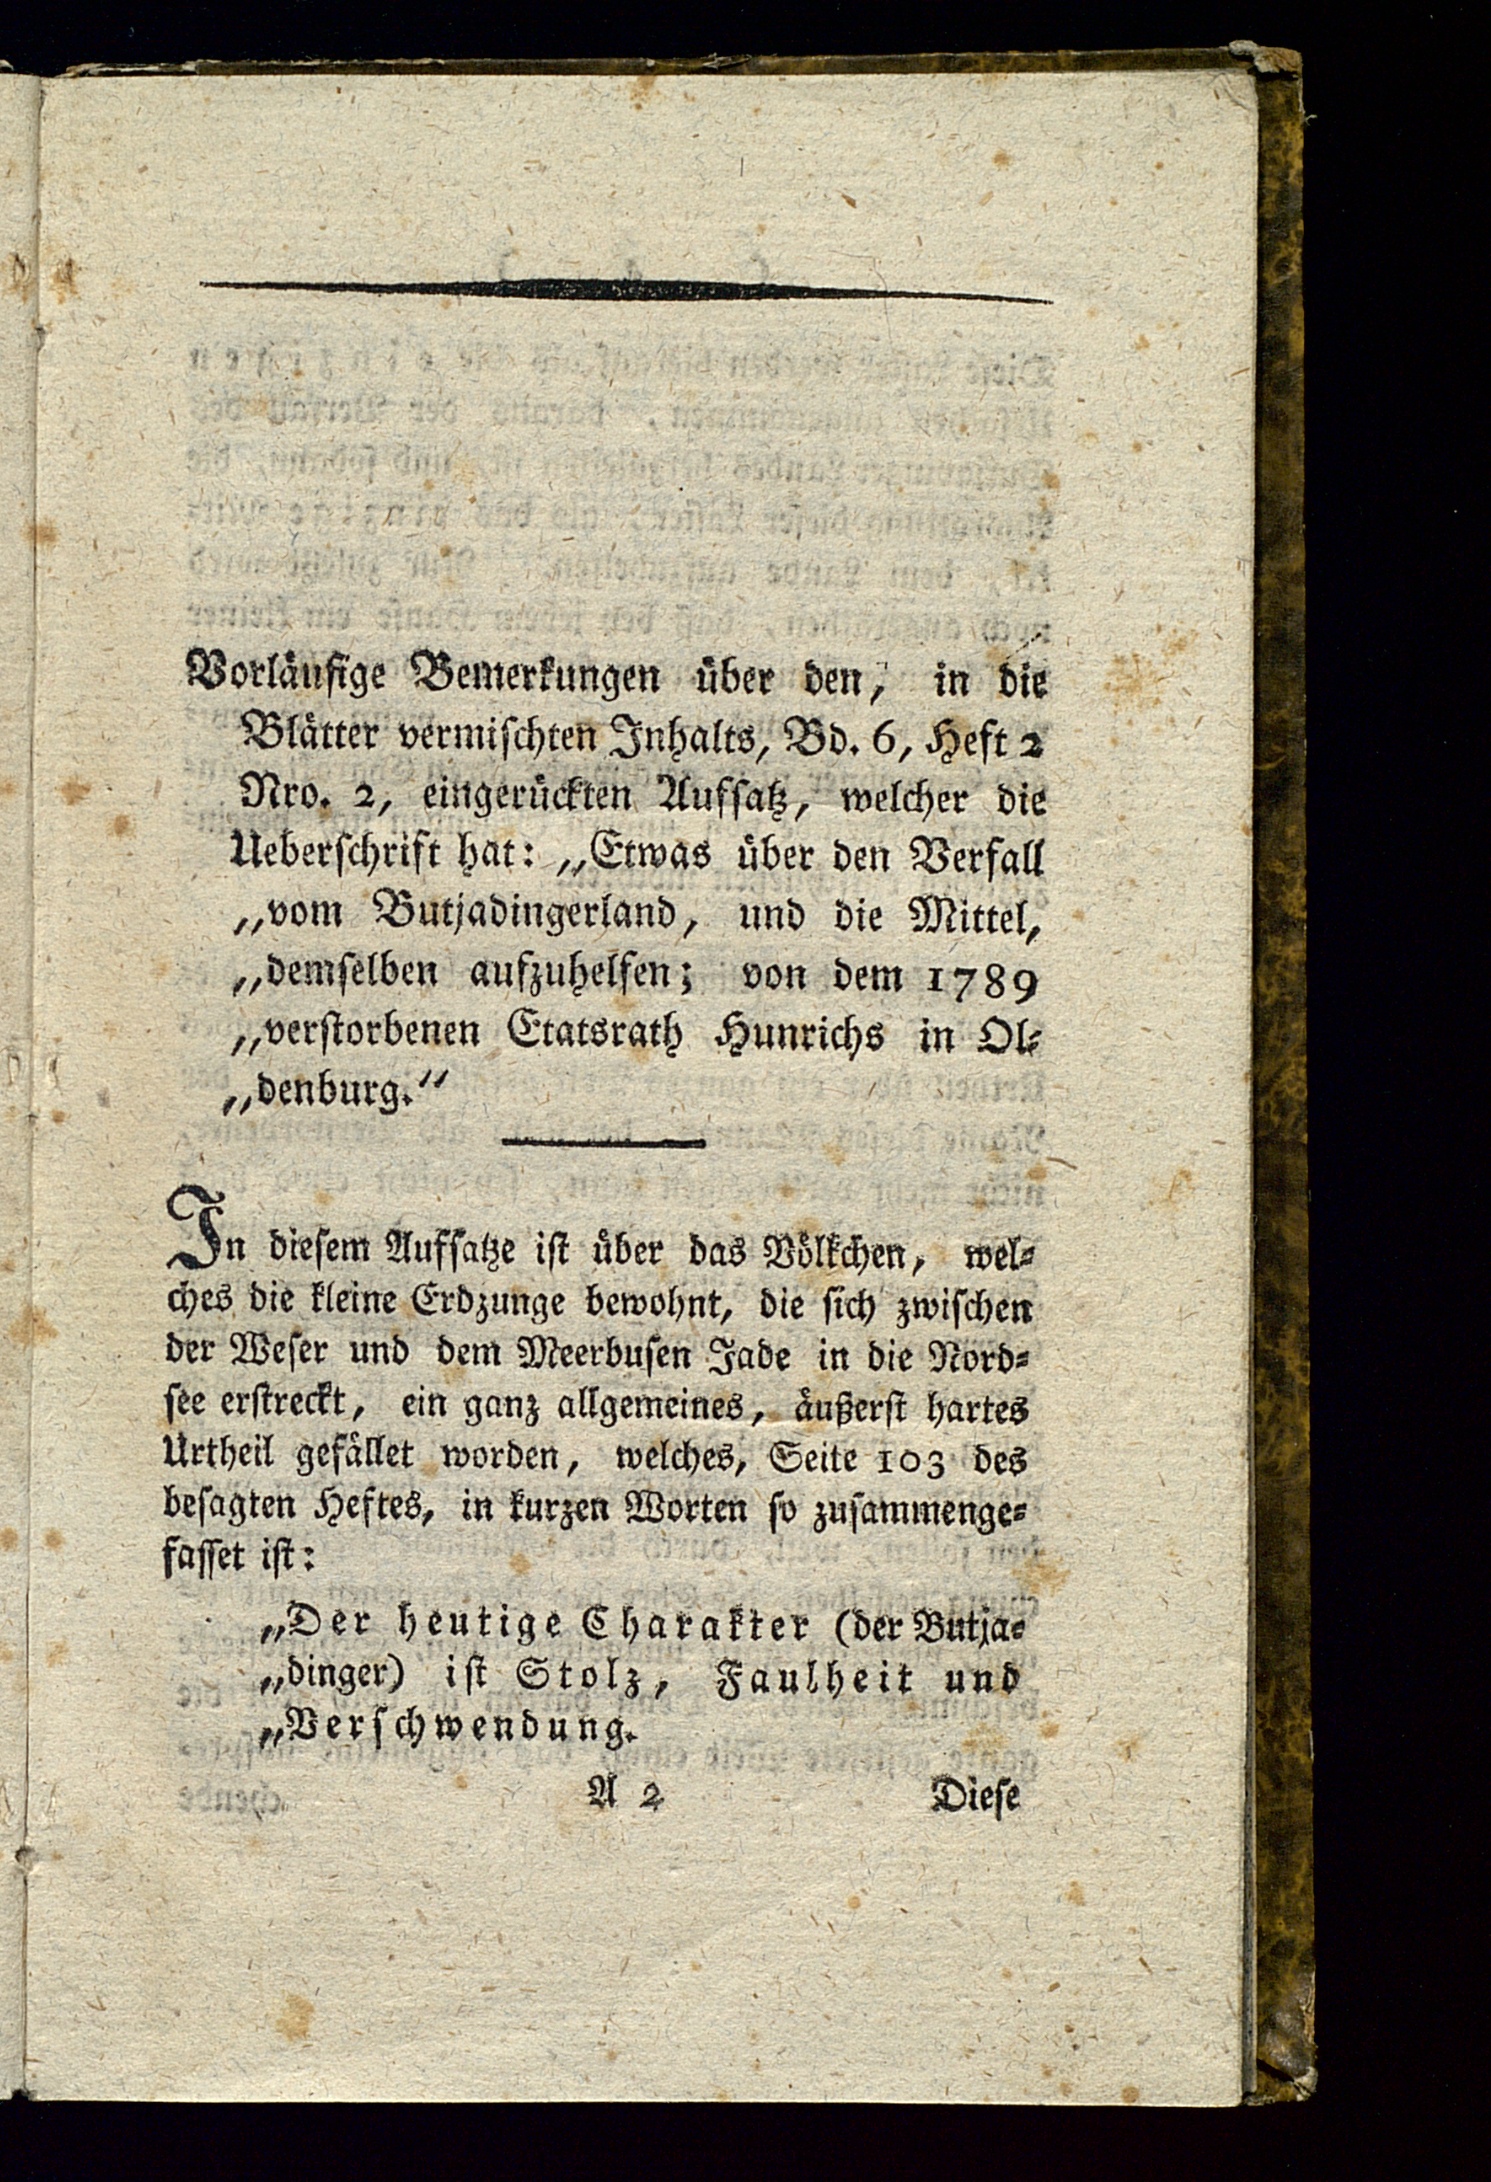 Vorläufige Bemerkungen über den, in die
Blätter vermischten Inhalts, Bd. 6, Heft 2
Nro. 2, eingerückten Aufsatz, welcher die
Ueberschrift hat: „Etwas über den Verfall
„vom Butjadingerland, und die Mittel,
„demselben aufzuhelfen; von dem 1789
„verstorbenen Etatsrath Hunrichs in Ol-
„denburg.“
In diesem Aufsatze ist über das Völkchen, wel-
ches die kleine Erdzunge bewohnt, die sich zwischen
der Weser und dem Meerbusen Jade in die Nord-
see erstreckt, ein ganz allgemeines, äußerst hartes
Urtheil gefället worden, welches, Seite 103 des
besagten Heftes, in kurzen Worten so zusammenge-
fasset ist:
„Der heutige Charakter (der Butja-
„dinger) ist Stolz, Faulheit und
„Verschwendung.
A 2 Diese